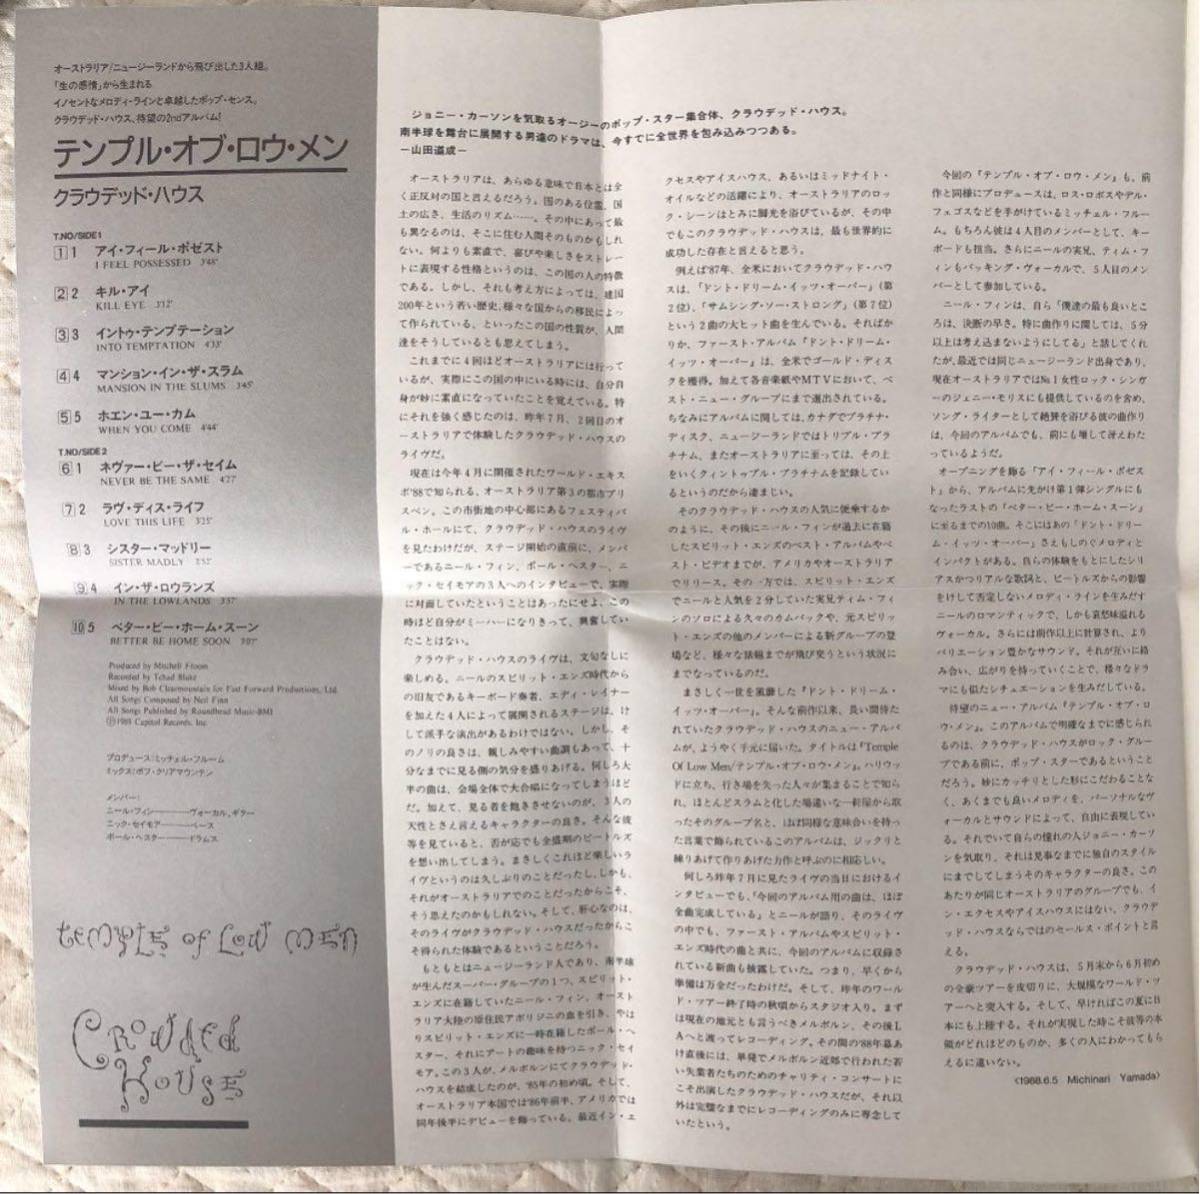 オーストラリア/ニュージーランドから飛び出した3人組。
「生の感情」から生まれる
イノセントなメロディ・ラインと卓越したポップ・センス。
クラウデッド・ハウス、待望の2ndアルバム!
テンプル・オブ・ロウ・メン
クラウデッド・ハウス
T.NO/SIDE1
1 1 アイ・フィール・ポゼスト
I FEEL POSSESSED 3'48"
2 2 キル・アイ
KILL EYE 3'12"
3 3 イントゥ・テンプテーション
INTO TEMPTATION 4'33"
4 4 マンション・イン・ザ・スラム
MANSION IN THE SLUMS 3'45"
5 5 ホエン・ユー・カム
WHEN YOU COME 4'44"
T.NO/SIDE2
6 1 ネヴァー・ビー・ザ・セイム
NEVER BE THE SAME 4'27"
7 2 ラヴ・ディス・ライフ
LOVE THIS LIFE 3'25"
8 3 シスター・マッドリー
SISTER MADLY 2'52"
9 4 イン・ザ・ロウランズ
IN THE LOWLANDS 3'57"
10 5 ベター・ビー・ホーム・スーン
BETTER BE HOME SOON 3'07"
Produced by Mitchell Froom
Recorded by Tchad Blake
Mixed by Bob Clearmountain for Fast Forward Productions, Ltd.
All Songs Composed by Neil Finn
All Songs Published by Roundhead Music-BMI
Ⓟ1988 Capitol Records, Inc.
プロデュース:ミッチェル・フルーム
ミックス:ボブ・クリアマウンテン
メンバー:
ニール・フィン———ヴォーカル、ギター
ニック・セイモア———ベース
ポール・ヘスター———ドラムス
temple of Low men
Crowded
House
ジョニー・カーソンを気取るオージーのポップ・スター集合体、クラウデッド・ハウス。
南半球を舞台に展開する男達のドラマは、今すでに全世界を包み込みつつある。
—山田道成—
オーストラリアは、あらゆる意味で日本とは全
く正反対の国と言えるだろう。国のある位置、国
土の広さ、生活のリズム……。その中にあって最
も異なるのは、そこに住む人間そのものかもしれ
ない。何よりも素直で、喜びや楽しさをストレー
トに表現する性格というのは、この国の人の特徴
である。しかし、それも考え方によっては、建国
200年という若い歴史、様々な国からの移民によっ
て作られている、といったこの国の性質が、人間
達をそうしているとも思えてしまう。
これまでに4回ほどオーストラリアには行って
いるが、実際にこの国の中にいる時には、自分自
身が妙に素直になっていたことを覚えている。特
にそれを強く感じたのは、昨年7月、2回目のオ
ーストラリアで体験したクラウデッド・ハウスの
ライヴだ。
現在は今年4月に開催されたワールド・エキス
ポ'88で知られる、オーストラリア第3の都市ブリ
スベン。この市街地の中心部にあるフェスティバ
ル・ホールにて、クラウデッド・ハウスのライヴ
を見たわけだが、ステージ開始の直前に、メンバ
ーであるニール・フィン、ポール・ヘスター、ニ
ック・セイモアの3人へのインタビューで、実際
に対面していたということはあったにせよ、この
時ほど自分がミーハーになりきって、興奮してい
たことはない。
クラウデッド・ハウスのライヴは、文句なしに
楽しめる。ニールのスピリット・エンズ時代から
の旧友であるキーボード奏者、エディ・レイナー
を加えた4人によって展開されるステージは、け
して派手な演出があるわけではない。しかし、そ
のノリの良さは、親しみやすい曲調もあって、十
分なまでに見る側の気分を盛りあげる。何しろ大
半の曲は、会場全体で大合唱になってしまうほど
だ。加えて、見る者を飽きさせないのが、3人の
天性とさえ言えるキャラクターの良さ。そんな彼
等を見ていると、否が応でも全盛期のビートルズ
を想い出してしまう。まさしくこれほど楽しいラ
イヴというのは久しぶりのことだったし、しかも、
それがオーストラリアでのことだったからこそ、
そう思えたのかもしれない。そして、肝心なのは、
そのライヴがクラウデッド・ハウスだったからこ
そ得られた体験であるということだろう。
もともとはニュージーランド人であり、南半球
が生んだスーパー・グループの1つ、スピリット・
エンズに在籍していたニール・フィン、オースト
ラリア大陸の原住民アボリジニの血を引き、やは
りスピリット・エンズに一時在籍したポール・ヘ
スター、それにアートの趣味を持つニック・セイ
モア。この3人が、メルボルンにてクラウデッド・
ハウスを結成したのが、'85年の初め頃。そして、
オーストラリア本国では'86年前半、アメリカでは
同年後半にデビューを飾っている。最近イン・エ
クセスやアイスハウス、あるいはミッドナイト・
オイルなどの活躍により、オーストラリアのロッ
ク・シーンはとみに脚光を浴びているが、その中
でもこのクラウデッド・ハウスは、最も世界的に
成功した存在と言えると思う。
例えば'87年、全米においてクラウデッド・ハウ
スは、「ドント・ドリーム・イッツ・オーバー」(第
2位)、「サムシング・ソー・ストロング」(第7位)
という2曲の大ヒット曲を生んでいる。そればか
りか、ファースト・アルバム『ドント・ドリーム・
イッツ・オーバー』は、全米でゴールド・ディス
クを獲得。加えて各音楽紙やMTVにおいて、ベ
スト・ニュー・グループにまで選出されている。
ちなみにアルバムに関しては、カナダでプラチナ・
ディスク、ニュージーランドではトリプル・プラ
チナム、またオーストラリアに至っては、その上
をいくクィントゥプル・プラチナムを記録してい
るというのだから凄まじい。
そのクラウデッド・ハウスの人気に便乗するか
のように、その後にニール・フィンが過去に在籍
したスピリット・エンズのベスト・アルバムやベ
スト・ビデオまでが、アメリカやオーストラリア
でリリース。その一方では、スピリット・エンズ
でニールと人気を2分していた実兄ティム・フィ
ンのソロによる久々のカムバックや、元スピリッ
ト・エンズの他のメンバーによる新グループの登
場など、様々な話題までが飛び交うという状況に
までなっているのだ。
まさしく一世を風靡した『ドント・ドリーム・
イッツ・オーバー』。そんな前作以来、長い間待た
れていたクラウデッド・ハウスのニュー・アルバ
ムが、ようやく手元に届いた。タイトルは『Temple
Of Low Men/テンプル・オブ・ロウ・メン』。ハリウッ
ドに立ち、行き場を失った人々が集まることで知ら
れ、ほとんどスラムと化した場違いな一軒屋から取
ったそのグループ名と、ほぼ同様な意味合いを持っ
た言葉で飾られているこのアルバムは、ジックリと
練りあげて作りあげた力作と呼ぶのに相応しい。
何しろ昨年7月に見たライヴの当日におけるイ
ンタビューでも、「今回のアルバム用の曲は、ほぼ
全曲完成している」とニールが語り、そのライヴ
の中でも、ファースト・アルバムやスピリット・
エンズ時代の曲と共に、今回のアルバムに収録さ
れている新曲も披露していた。つまり、早くから
準備は万全だったわけだ。そして、昨年のワール
ド・ツアー終了時の秋頃からスタジオ入り。まず
は現在の地元とも言うべきメルボルン、その後L
Aへと渡ってレコーディング。その間の'88年幕あ
け直後には、単発でメルボルン近郊で行われた若
い失業者たちのためのチャリティ・コンサートに
こそ出演したクラウデッド・ハウスだが、それ以
外は完璧なまでにレコーディングのみに専念して
いたという。
今回の『テンプル・オブ・ロウ・メン』も、前
作と同様にプロデュースは、ロス・ロボスやデル・
フェゴスなどを手がけているミッチェル・フルー
ム。もちろん彼は4人目のメンバーとして、キー
ボードも担当。さらにニールの実兄、ティム・フ
ィンもバッキング・ヴォーカルで、5人目のメン
バーとして参加している。
ニール・フィンは、自ら「僕達の最も良いとこ
ろは、決断の早さ。特に曲作りに関しては、5分
以上は考え込まないようにしてる」と話してくれ
たが、最近では同じニュージーランド出身であり、
現在オーストラリアではNo.1女性ロック・シンガ
ーのジェニー・モリスにも提供しているのを含め、
ソング・ライターとして絶賛を浴びる彼の曲作り
は、今回のアルバムでも、前にも増して冴えわた
っているようだ。
オープニングを飾る「アイ・フィール・ポゼス
ト」から、アルバムに先がけ第1弾シングルにも
なったラストの「ベター・ビー・ホーム・スーン」
に至るまでの10曲。そこにはあの「ドント・ドリー
ム・イッツ・オーバー」さえもしのぐメロディと
インパクトがある。自らの体験をもとにしたシリ
アスかつリアルな歌詞と、ビートルズからの影響
をけして否定しないメロディ・ラインを生みだす
ニールのロマンティックで、しかも哀愁味溢れる
ヴォーカル。さらには前作以上に計算され、より
バリエーション豊かなサウンド。それが互いに絡
み合い、広がりを持っていくことで、様々なドラ
マにも似たシチュエーションを生みだしている。
待望のニュー・アルバム『テンプル・オブ・ロ
ウ・メン』。このアルバムで明確なまでに感じられ
るのは、クラウデッド・ハウスがロック・グルー
プである前に、ポップ・スターであるということ
だろう。妙にカッチリとした形にこだわることな
く、あくまでも良いメロディを、パーソナルなヴ
ォーカルとサウンドによって、自由に表現してい
る。それでいて自らの憧れの人ジョニー・カーソ
ンを気取り、それは見事なまでに独自のスタイル
にまでしてしまうそのキャラクターの良さ。この
あたりが同じオーストラリアのグループでも、イ
ン・エクセスやアイスハウスにはない、クラウデ
ッド・ハウスならではのセールス・ポイントと言
える。
クラウデッド・ハウスは、5月末から6月初め
の全豪ツアーを皮切りに、大規模なワールド・ツ
アーへと突入する。そして、早ければこの夏に日
本にも上陸する。それが実現した時こそ彼等の本
領がどれほどのものか、多くの人にわかってもら
えるに違いない。
(1988.6.5 Michinari Yamada)